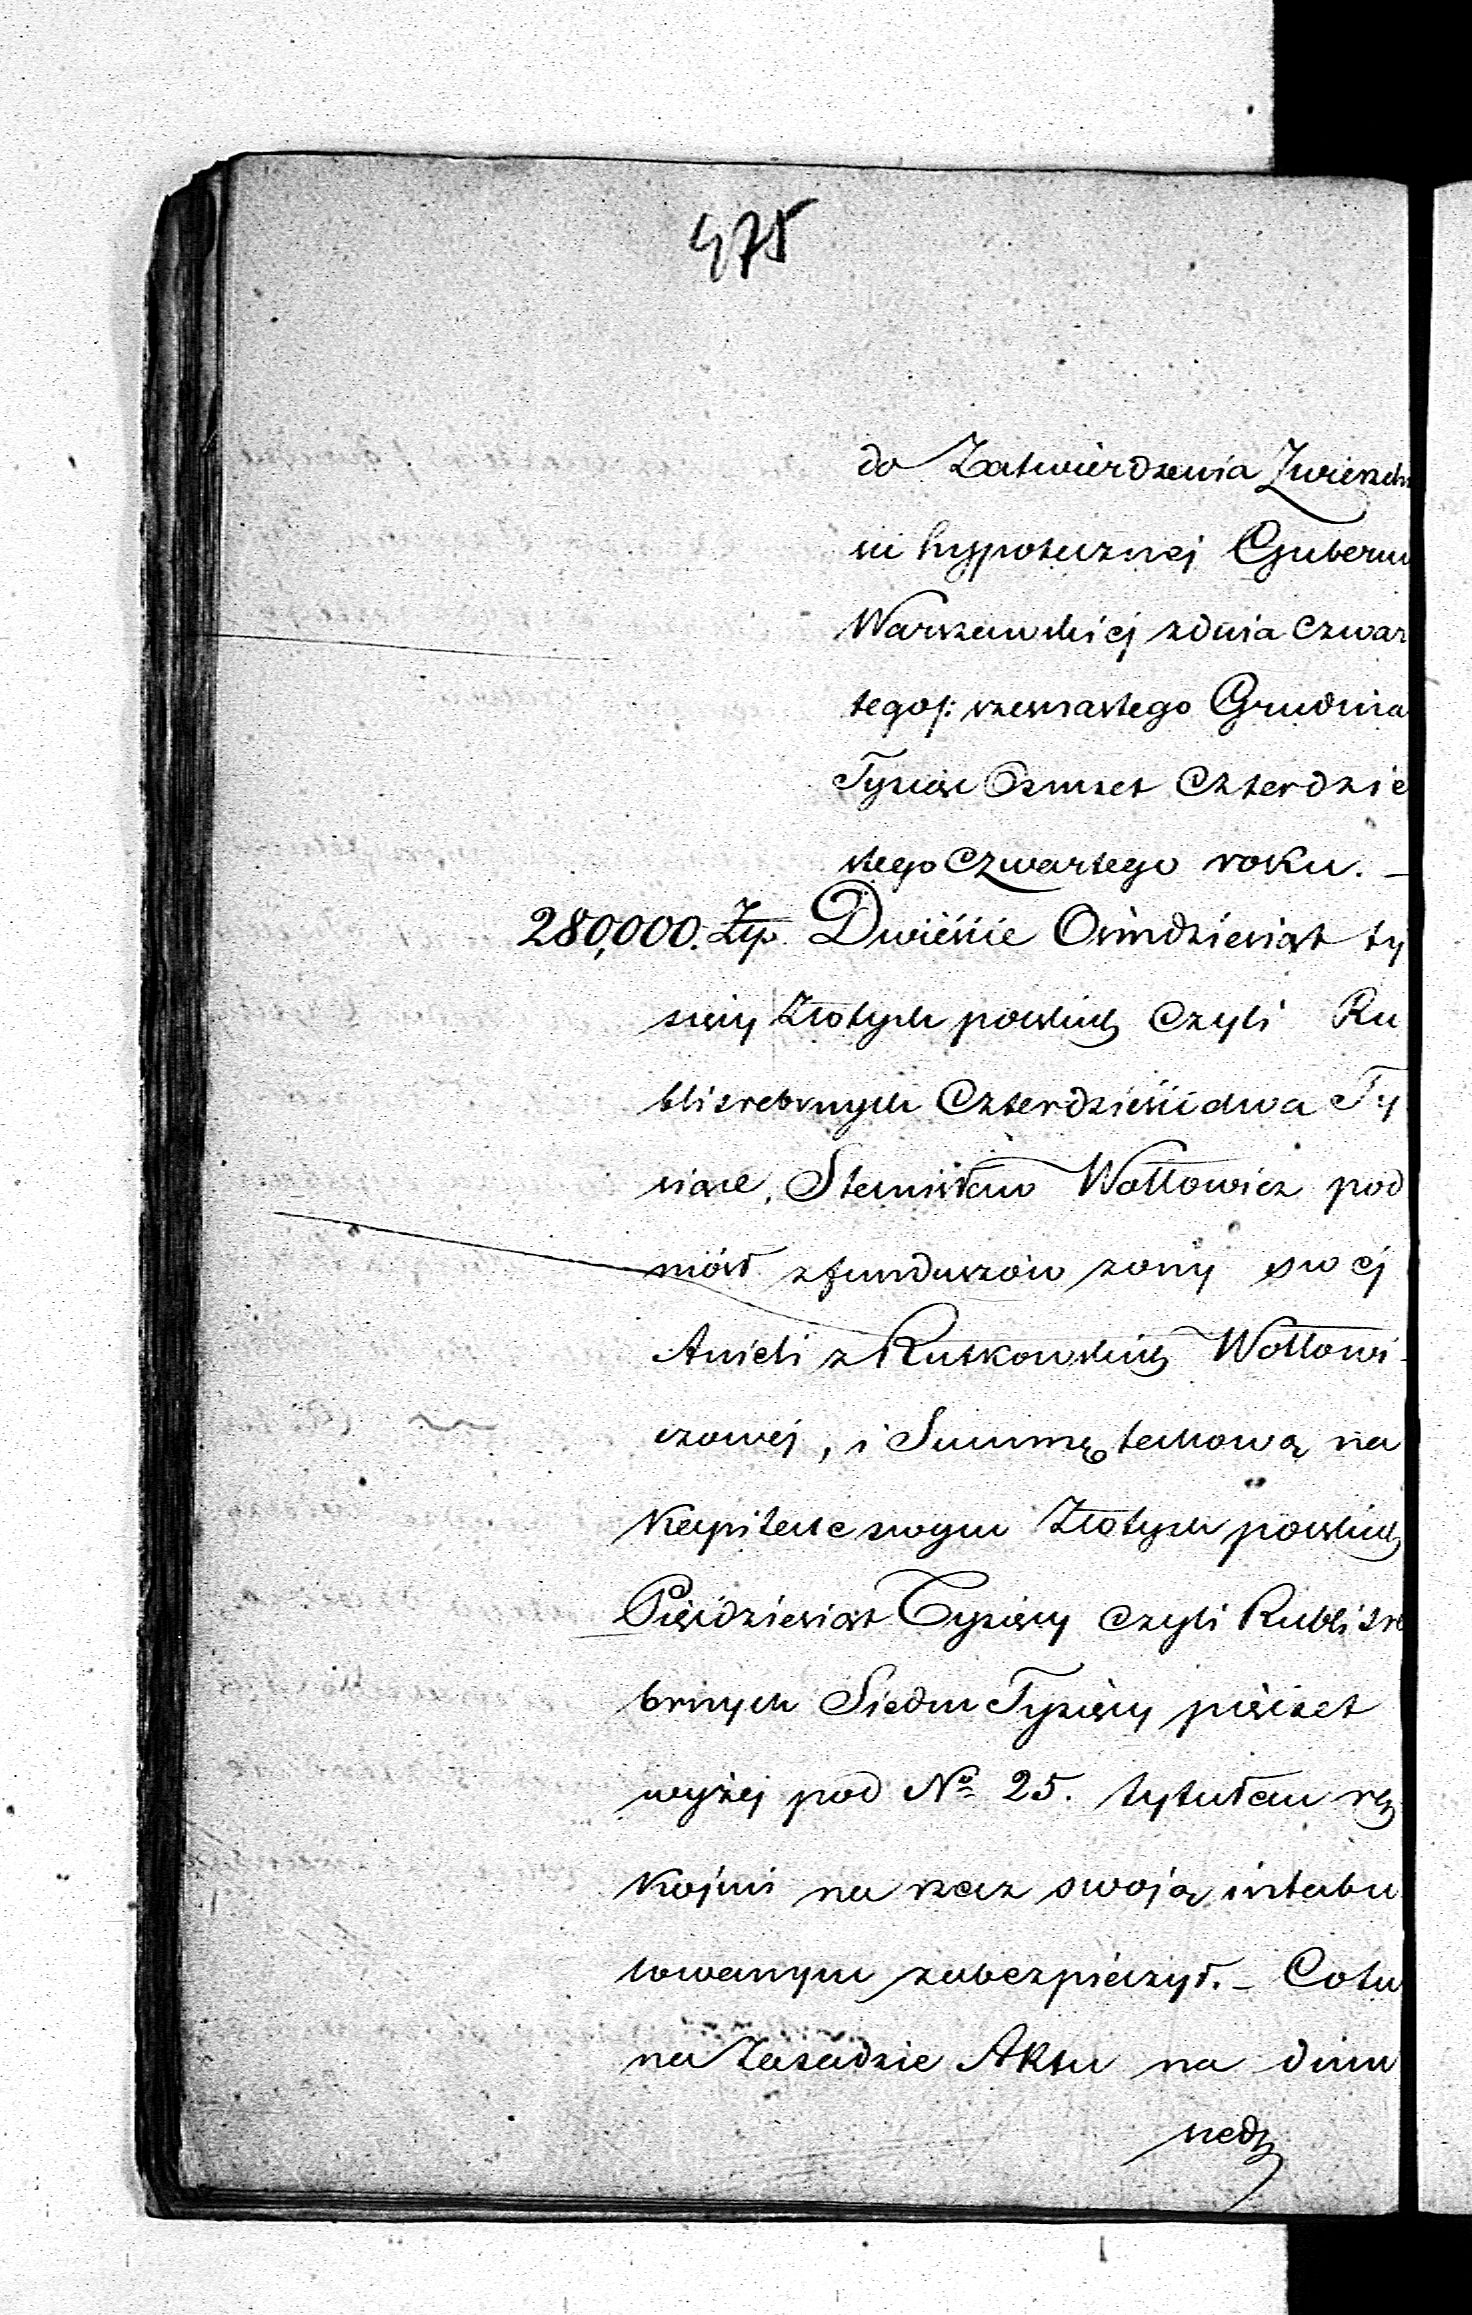 475
do Zatwierdzenia Zwierzch
ni hypotecznej Guberni
Warszawskiej z dnia Czwar
tego/: szesnastego Grudnia
Tysiąc Osmset Czterdzie
stego Czwartego roku. –
280,000. Złp. Dwieście Ośmdziesiąt ty
sięcy Złotych polskich Czyli Ru
bli srebrnych Czterdzieści dwa Ty
siące, Stanisław Wołłowicz pod
niósł z funduszów żony swej
Anieli z Rutkowskich Wołłowi
czowej, i Summę takową na
Kapitale swym Złotych polskich
Pięćdziesiąt Tysięcy czyli Rubli sre
brnych Siedm Tysięcy pięćset
wyżej pod Nº 25. tytułem rę
kojmi na rzecz swoją intabu
lowanym zabezpieczył. – Co tu
na Zasadzie Aktu na dniu